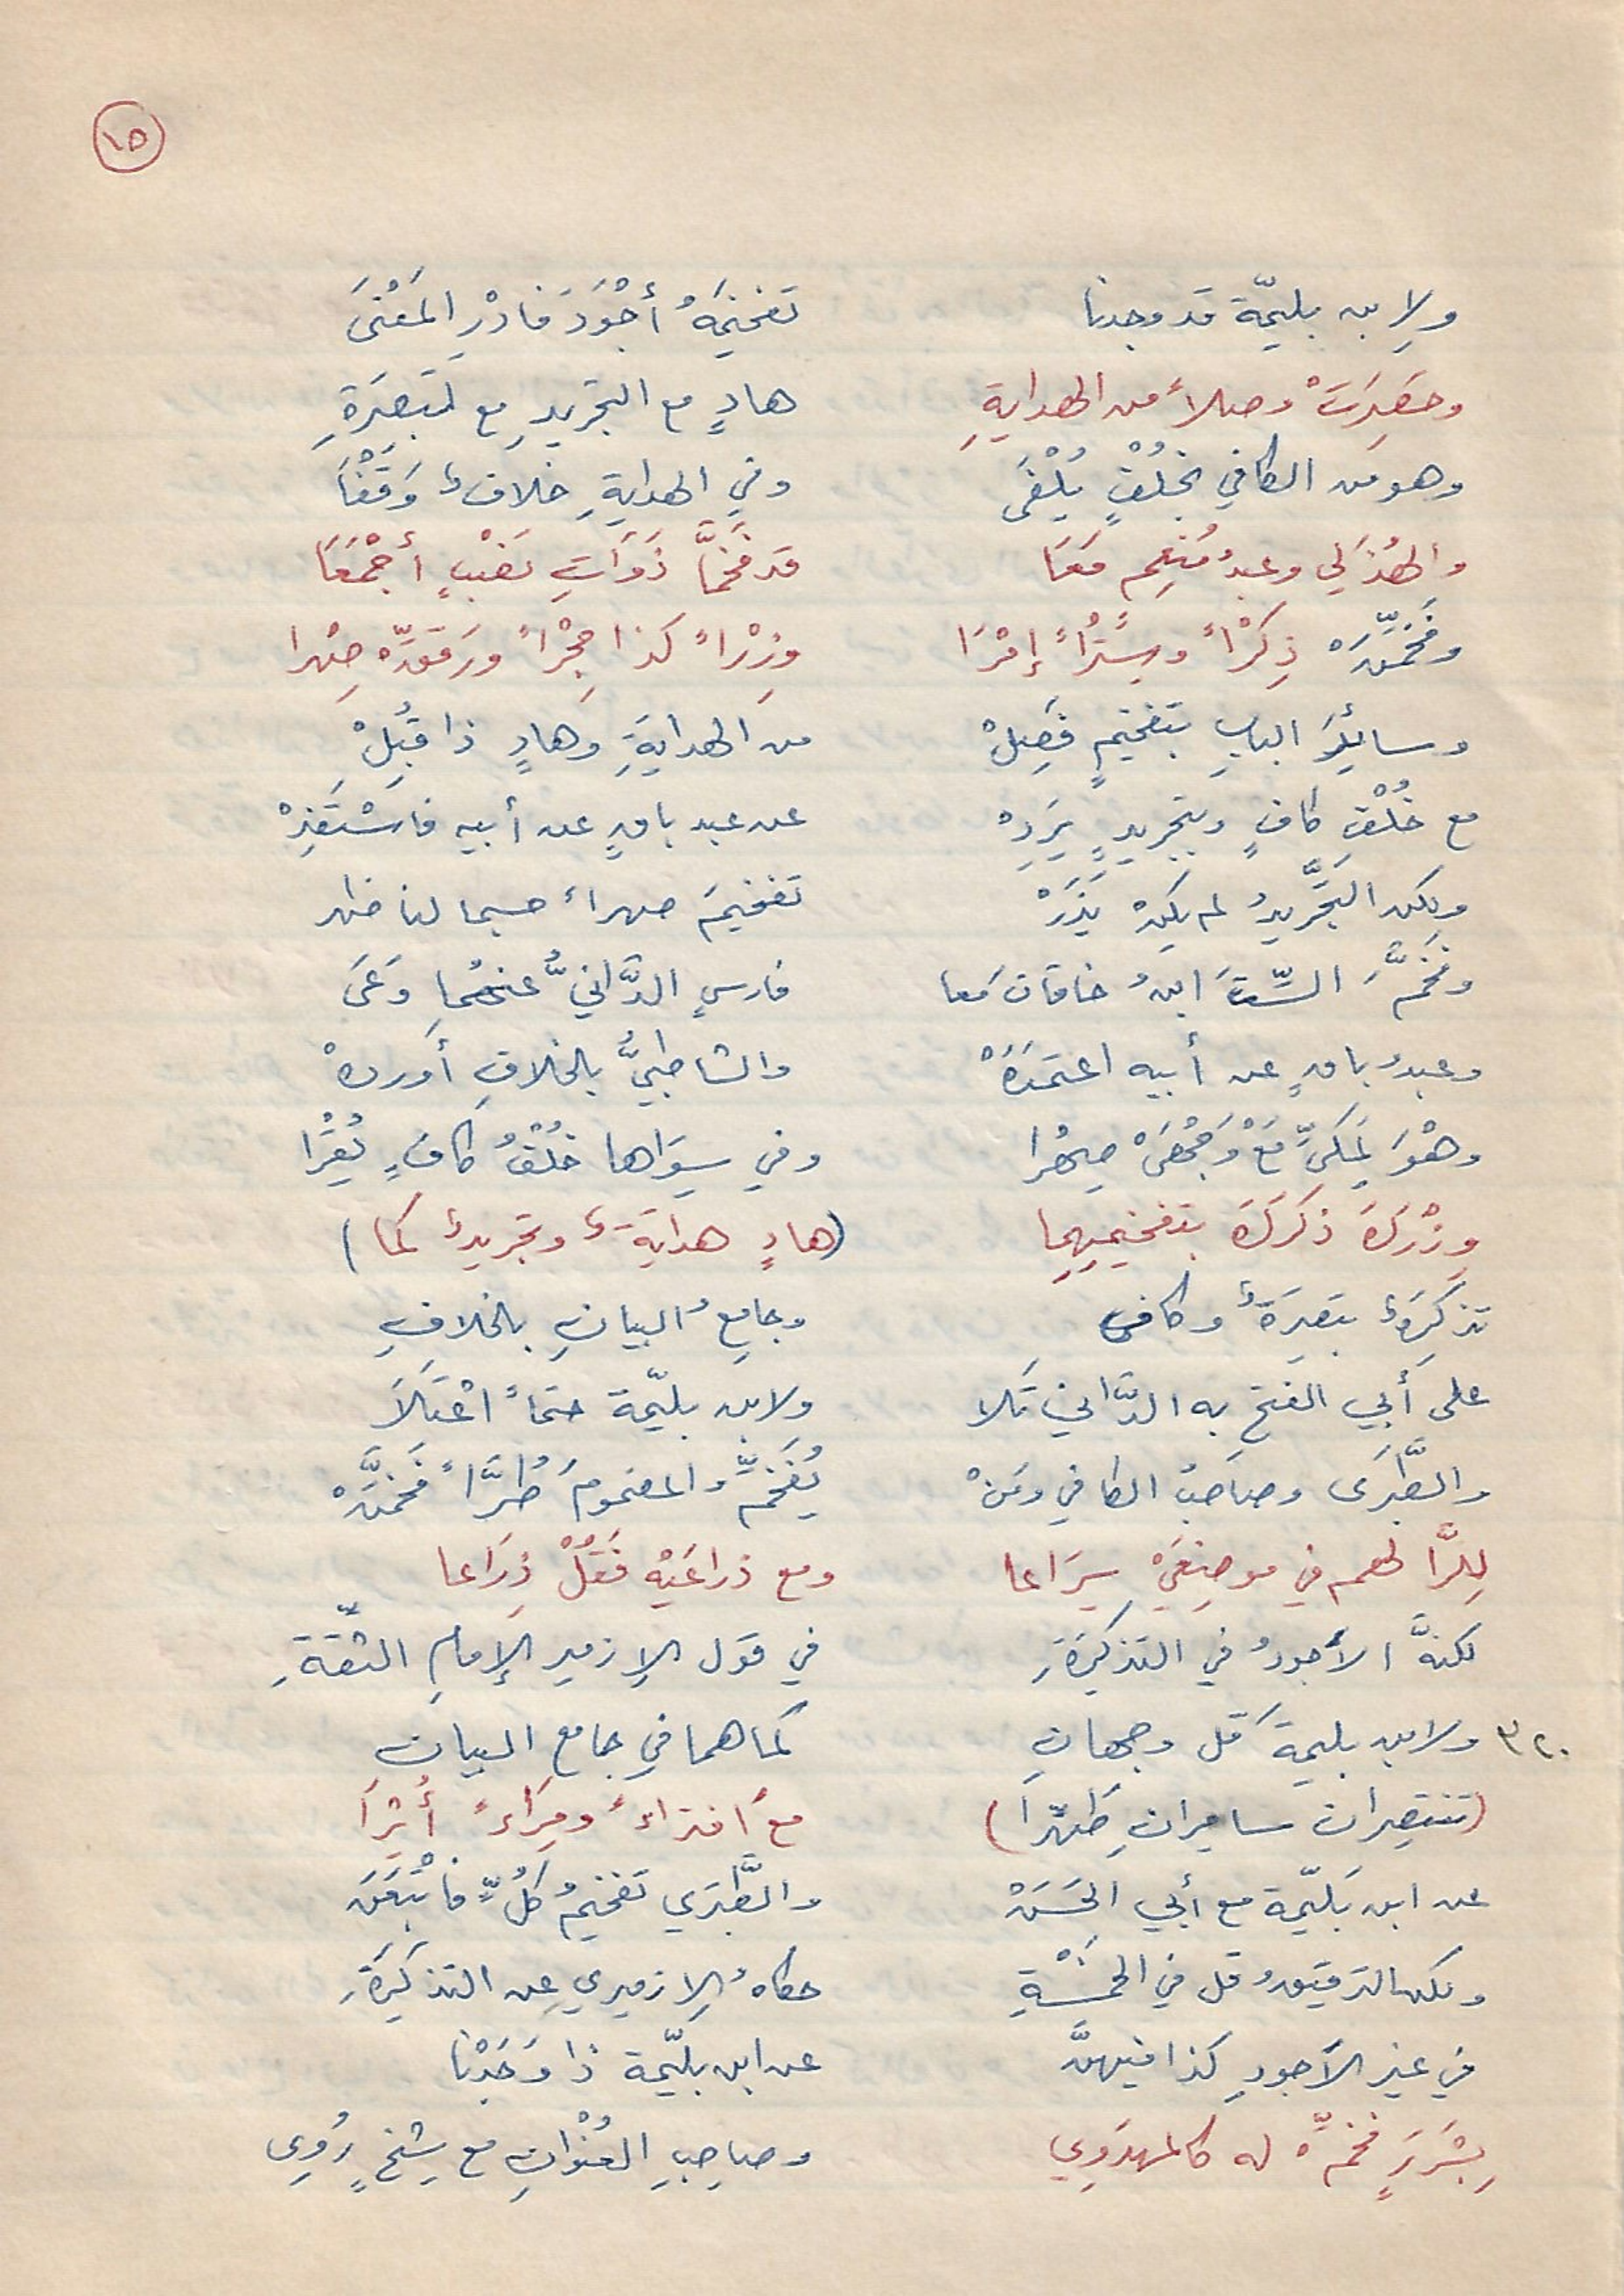 ١٥
ولِابن بليمّة قد وجدنا تفخيمَهُ أجْوَدَ فادْرِ المَعْنَى
وحَصِرَتْ وصلاً من الهدايةِ هادٍ مع التجريدِ مع تَبصِرَةِ
وهو من الكافي بخُلْفٍ يُلْفَى وفي الهدايةِ خلافٌ وَقَفْاَ
والهُذَلي وعبدُ مُنعِم مَعَا قد فَخَّمَا ذَوَاتِ نَصْبٍ أجْمَعَا
وفَخِّمَنْ ذِكْراً وسِتْراً إمْرَا وزْراً كذا حِجْراً ورَقِّقَنْ صِهرا
وسائِرَ البابِ بتفخيمٍ فَصِلْ من الهدايةِ وهادٍ ذا قُبِلْ
مع خُلْفِ كافٍ وبتجريدٍ يَرِدْ عن عبد باقٍ عن أبيه فاسْتَفِدْ
ولكن التجَّريدُ لم يكنْ يَذَرْ تفخيمَ صهراً حسبما لنا ظهر
وفَخَّمَ السِّتَ ابنُ خاقان معا فارسٍ الدَّانيُّ عنهُما وَعَى
وعبدُ باقٍ عن أبيه اعتمَدَهْ والشاطبيُّ بالخلافِ أوردهْ
وهْوَ لِمَكيٍّ مَعْ وَجْهَيْ صِهْرا وفي سِوَاها خُلْفُ كافٍ يُقْرَا
وِزْرَكَ ذكرَكَ بتفخيمِهِما (هادٍ هدايَةٌ وتجريدٌ كما)
تذكِرَةٌ تبصِرَةٌ وكافى وجامعُ البيانِ بالخلافِ
على أبي الفتح به الدَّاني تَلا ولابن بليّمة حتماً اعْتَلاَ
والطَّبَرَى وصاحبُ الكافي ومَنْ يُفَخِّمُ والمضمومُ طُرَّاً فَخمَّنْ
لِلرَّا لهم في موضِعَيْ سِرَاعا ومع ذراعَيْهِ فَقُلْ ذِرَاعا
لكنَّ الأجودُ في التذكِرَةِ في قول الإزمير الإمامِ الثقّةِ
٣٢٠ ولابن بليمةَ قل وجهانِ كما هما في جامع البيان
(تنتصِران ساحِرانِ طَهِّرَا) مع افتراءً ومِرَاءً أُثْرَا
عن ابن بَليّمة مع أبي الحَسَنْ والطَّبَري تفخيمُ كُلٍّ فاتْبَعَن
ولكن الترقيقُ قل في الخمسَةِ حكاهُ الإزميري عن التذكِرَةِ
في غير الأجودِ كذا فيهنَّ عن ابن بليّمة ذا وَجَدْنا
بِشَرَرٍ فخمِّنْ له كالمهدَوِي وصاحِبِ العُنْوانِ مع شيخٍ رُوِى